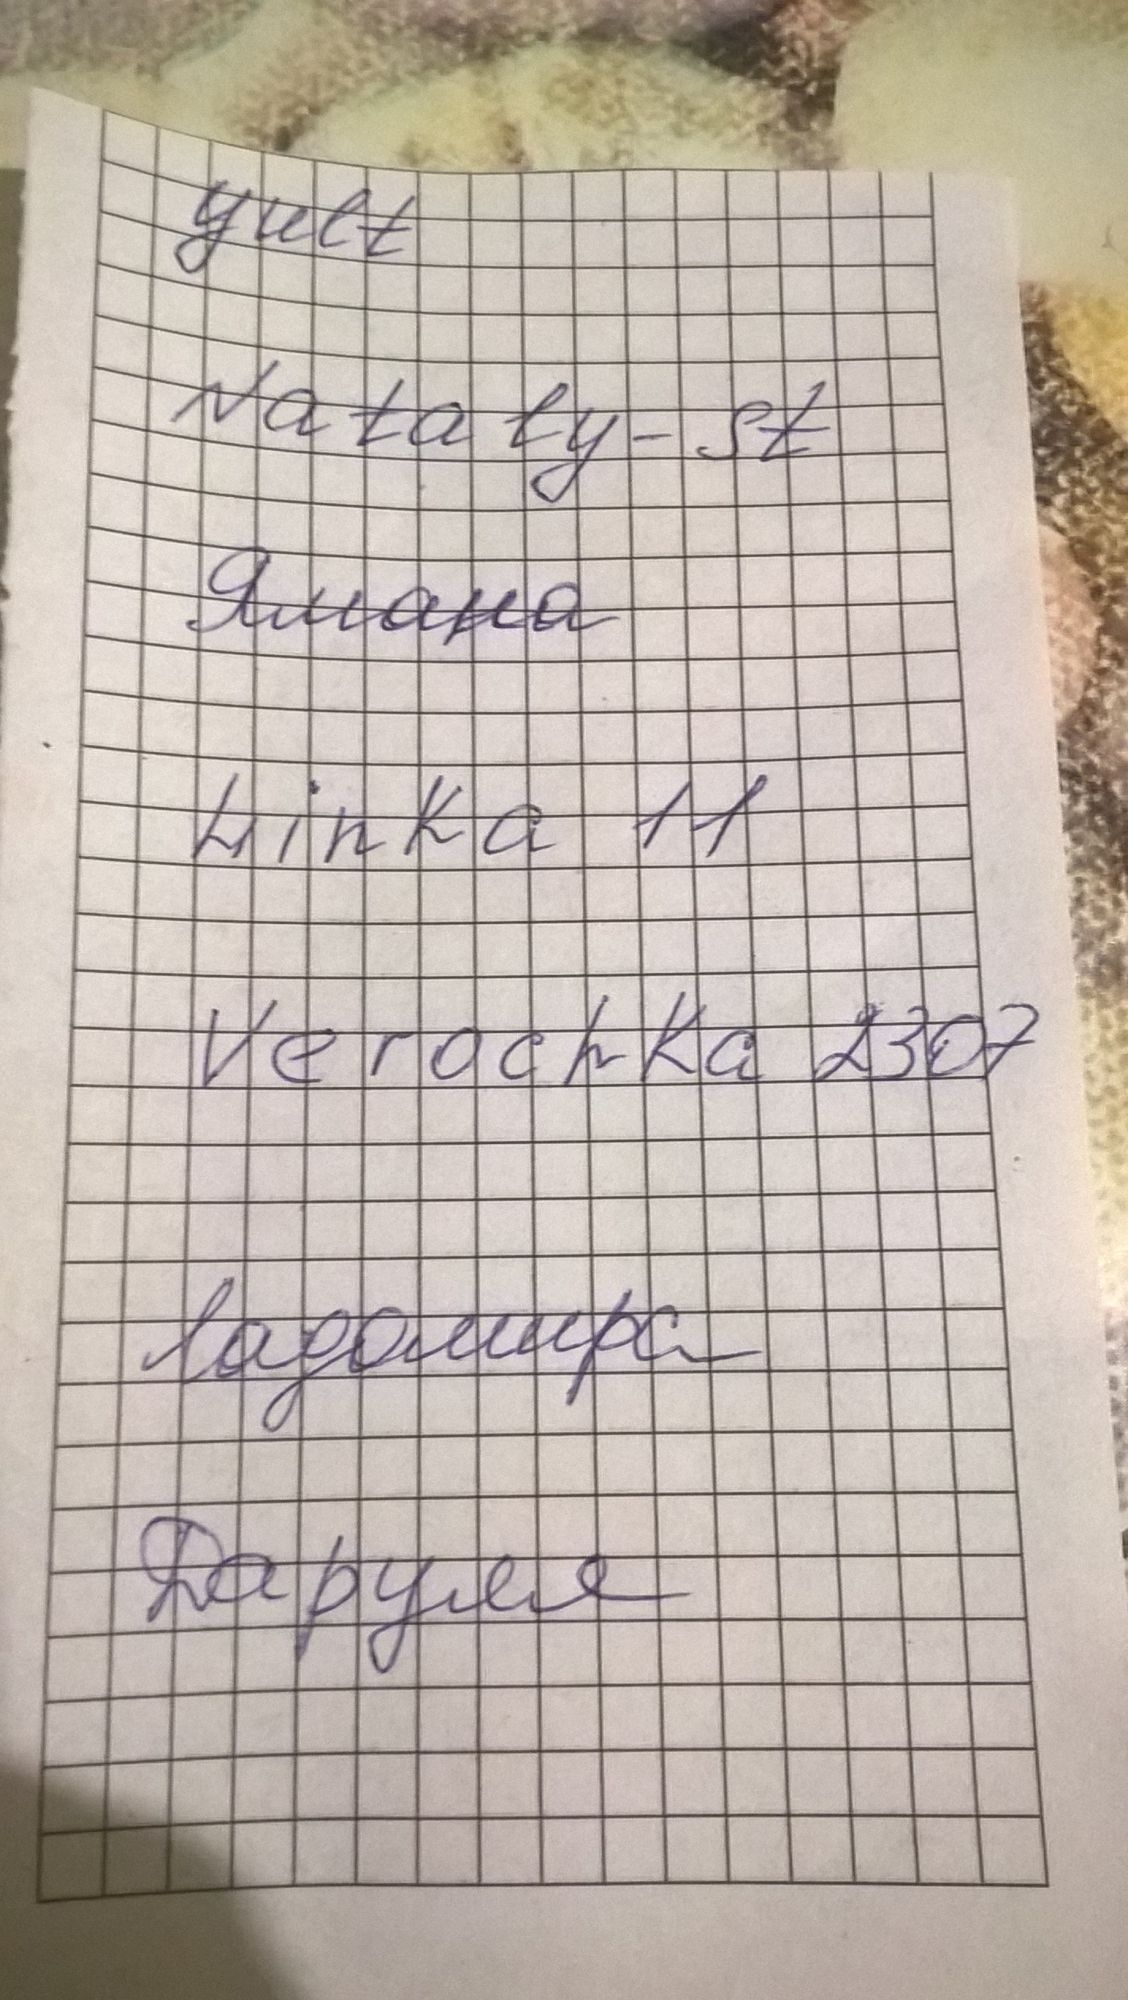 yult
Nataly-st
Ямана
Linka 11
Verochka 2307
Ладомира
Даруля